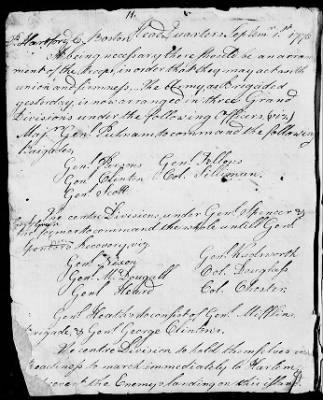 14.
Ps. Hartford, C. Boston Head Quarters Septemr. 1st. 1776
It being necessary there should be an arrange
ment of the Troops, in order that they may act with
union and firmness. The Army as Brigaded
yesterday, is now arranged in three Grand
Divisions under the following Officers (viz)
Majr. Genl. Putnam to command the following
Brigades.
Genl. Parsons Genl. Fellows
Genl. Clinton Col. Silliman.
Genl. Scott
The centre Divisions, under Genl. Spencer &
the former to command the whole untill Genl.
Recovery, viz
Genl. Nixon Genl. Wadsworth
Genl. McDougall Col. Douglass
Genl. Heard Col. Chester.
Genl. Heath's to consist of Genl. Mifflins
Brigade, & Genl. George Clintons.
The centre Division to hold themselves in
Readiness to march immediately to Harlem
the Enemys landing on this island